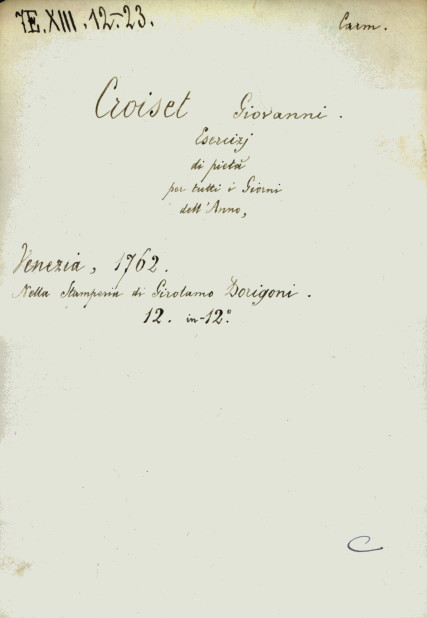 7E.XIII.12-23.
Carm.
Croiset Giovanni.
Esercizj
di pietà
per tutti i Giorni
dell'Anno,
Venezia, 1762.
Nella Stamperia di Girolamo Dorigoni.
12. in-12.°
C